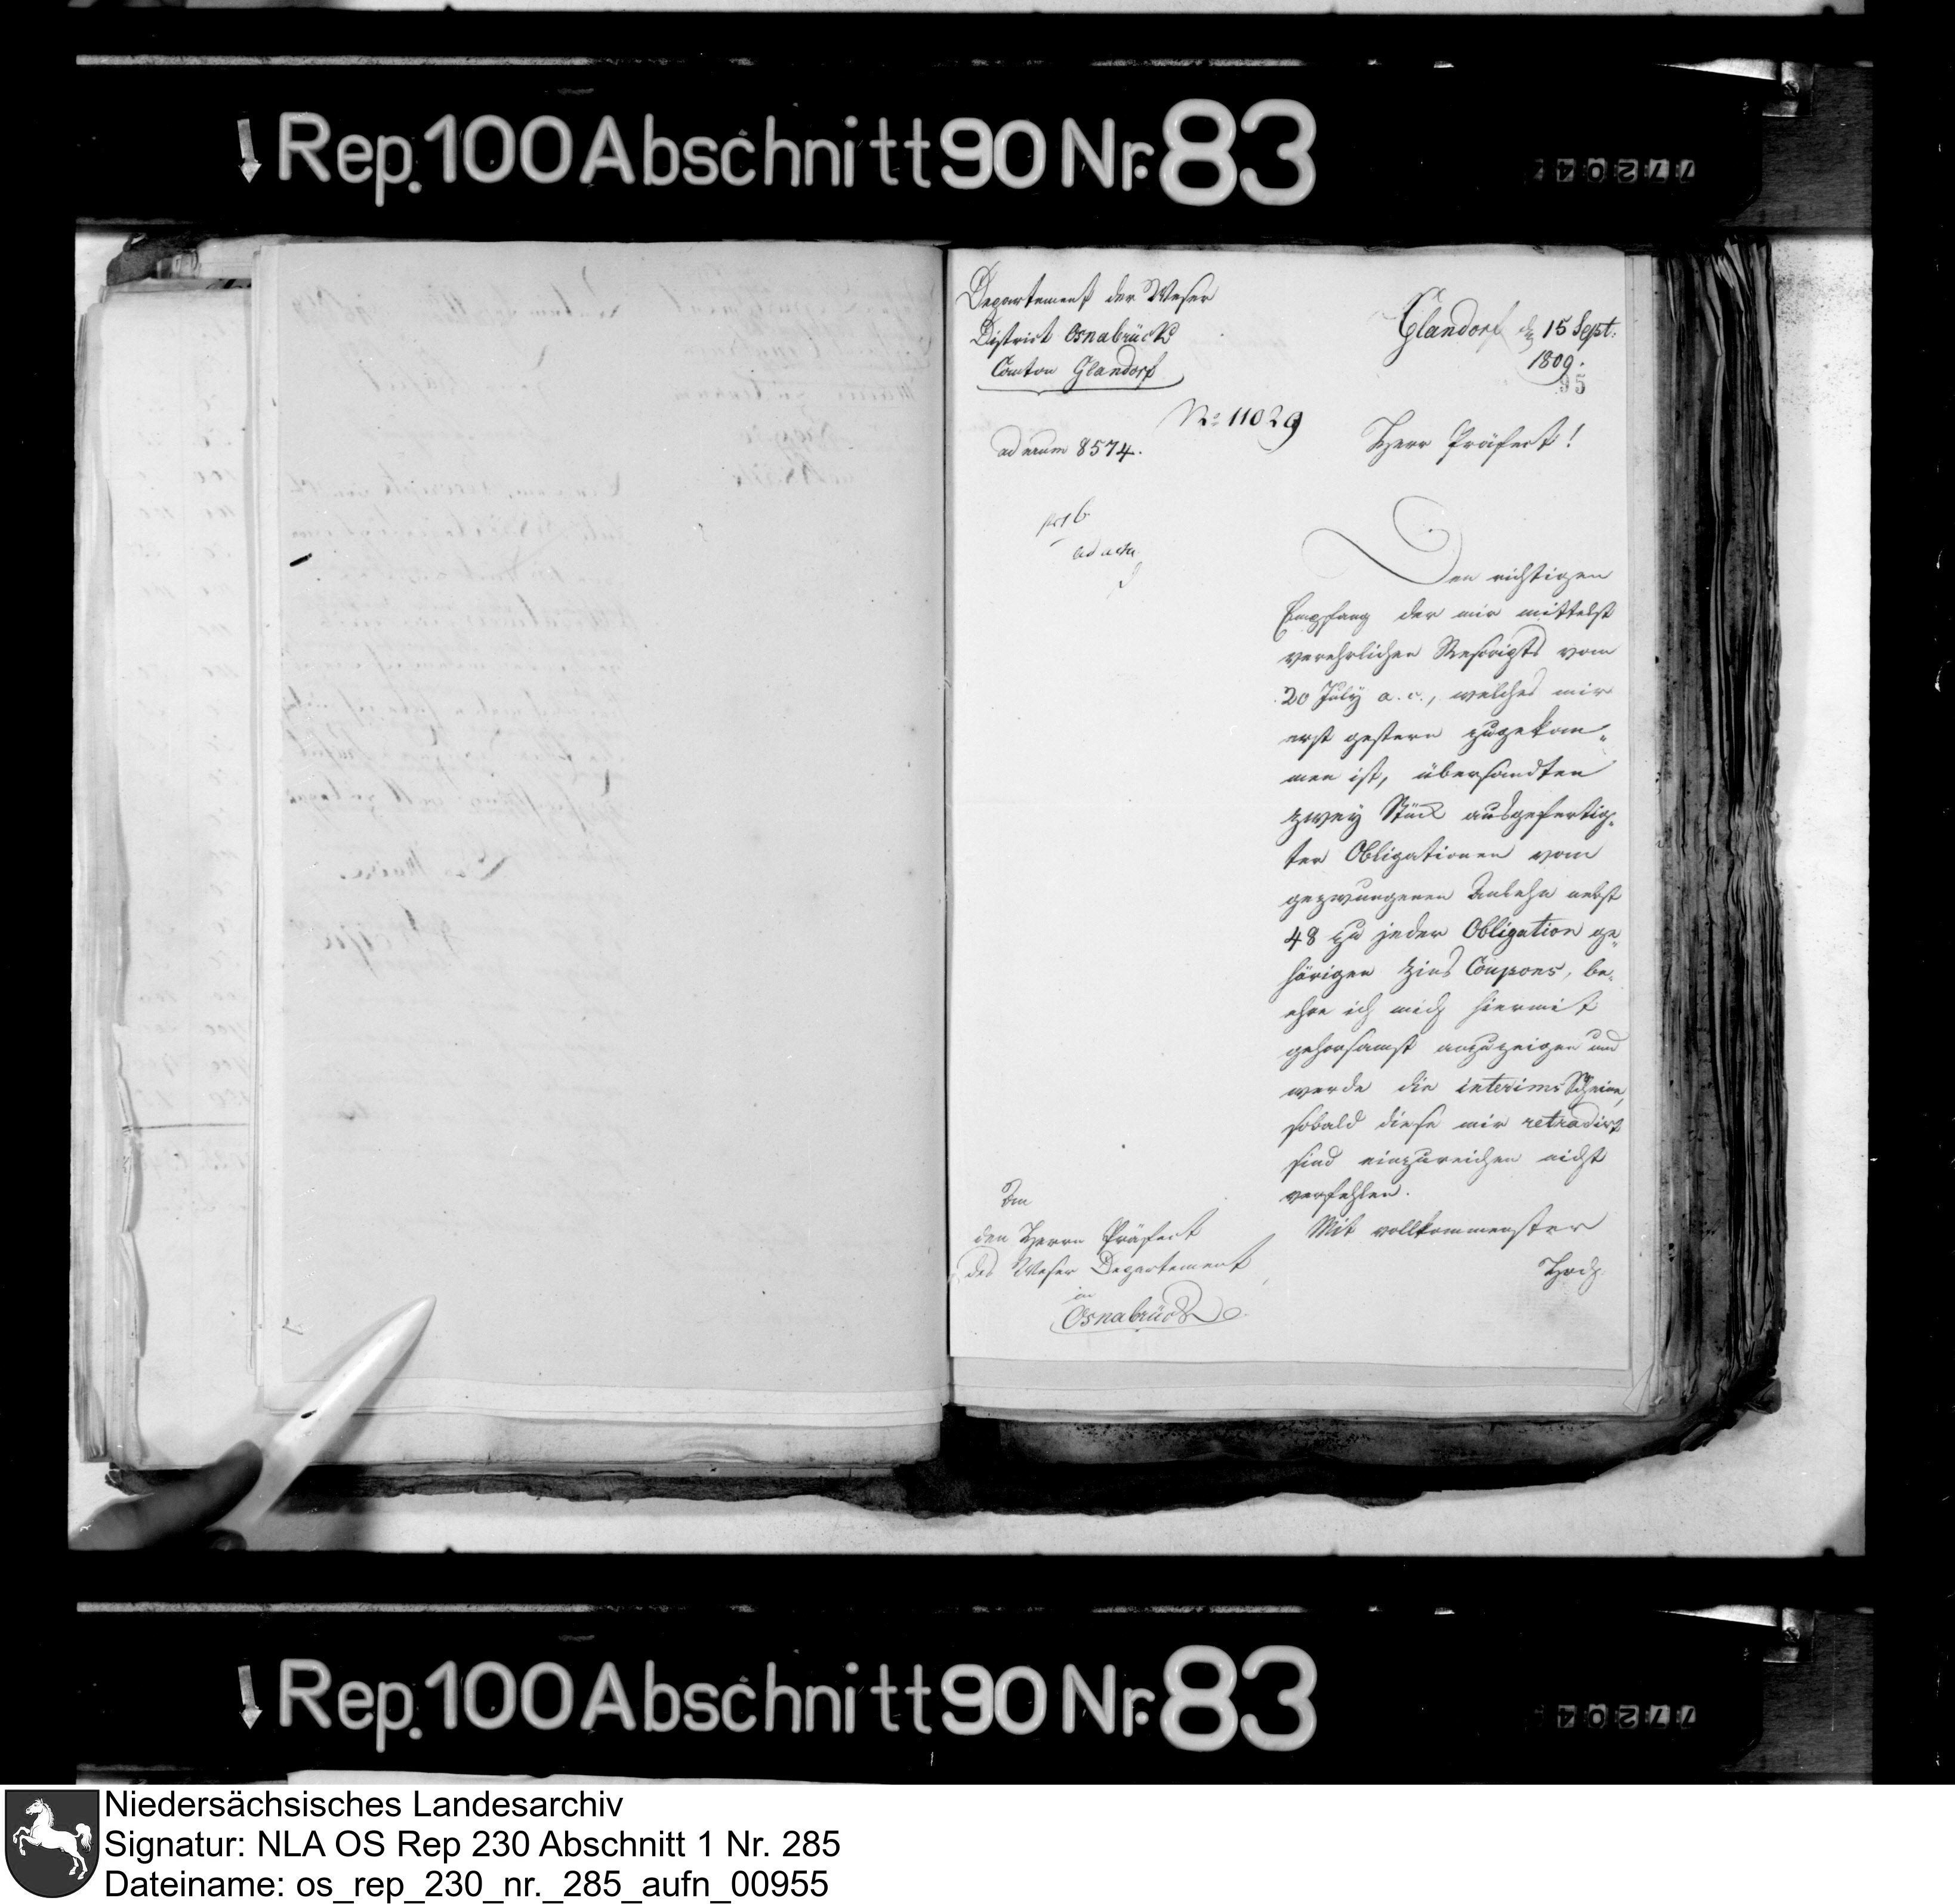 Rep. 100 Abschnitt 90 Nr. 83
77204
Departement der Weser
District Osnabrück
Canton Glandorf
Glandorf den 15 Sept.
1809.
95
No 11029
ad num 8574.
Herr Präfect!
ad acta
Den richtigen
Empfang der mir mittelst
verehrlichen Rescripts vom
20 July a. c., welches mir
erst gestern zugekom„
men ist, übersandten
zwey Stück ausgefertig„
ter Obligationen vom
gezwungenen Anlehn nebst
48 zu jeder Obligation ge„
hörigen Zins Coupons, be„
ehre ich mich hiermit
gehorsamst anzuzeigen und
werde die interims Scheine,
sobald diese mir retradirt
sind einzureichen nicht
verfehlen.
Mit vollkommenster
Hoch
An
den Herrn Präfect
des Weser Departement
in
Osnabrück
Rep. 100 Abschnitt 90 Nr. 83
77204
Niedersächsisches Landesarchiv
Signatur: NLA OS Rep 230 Abschnitt 1 Nr. 285
Dateiname: os_rep_230_nr._285_aufn_00955